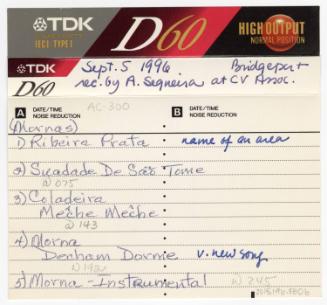 TDK
IECI/TYPE I
D60
HIGH OUTPUT
NORMAL POSITION
TDK
D60
Sept. 5 1996 Bridgeport
rec. by A. Sequeira at CV Assoc.
A DATE/TIME
NOISE REDUCTION
AC-300
B DATE/TIME
NOISE REDUCTION
(Mornas)
1) Ribeira Prata name of an area
2) Suadade De São Tome
@ 075
3) Coladeira
Mêche Mêche
@ 143
4) Morna
Deaham Dorme v. new song
@ 192
5) Morna - Instrumental @ 245